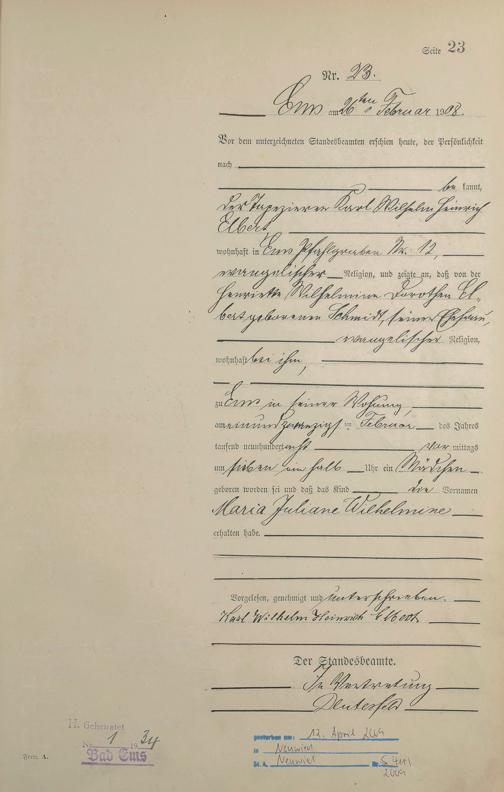 Seite 23
Nr. 23.
Ems am 26ten Februar 1908.
Vor dem unterzeichneten Standesbeamten erschien heute, der Persönlichkeit
nach
be kannt,
der Tapezierer Karl Wilhelm Heinrich
Elbert,
wohnhaft in Ems Pfahlgraben Nr. 12,
evangelischer Religion, und zeigte an, daß von der
Henriette Wilhelmine Dorothea El-
bert geborenen Schmidt, seiner Ehefrau,
evangelischer Religion,
wohnhaft bei ihm,
zu Ems in seiner Wohnung,
am einundzwanzigsten Februar des Jahres
tausend neunhundert acht vor mittags
um sieben ein halb Uhr ein Mädchen
geboren worden sei und daß das Kind die Vornamen
Maria Juliane Wilhelmine
erhalten habe.
Vorgelesen, genehmigt und unterschrieben.
Karl Wilhelm Heinrich Elbert
Der Standesbeamte.
In Vertretung
H. Geheiratet
Nr. 1 1934
Bad Ems
Form. A.
gestorben am: 12. April 2009
in Neuwied
St. A. Neuwied Nr. S
2009